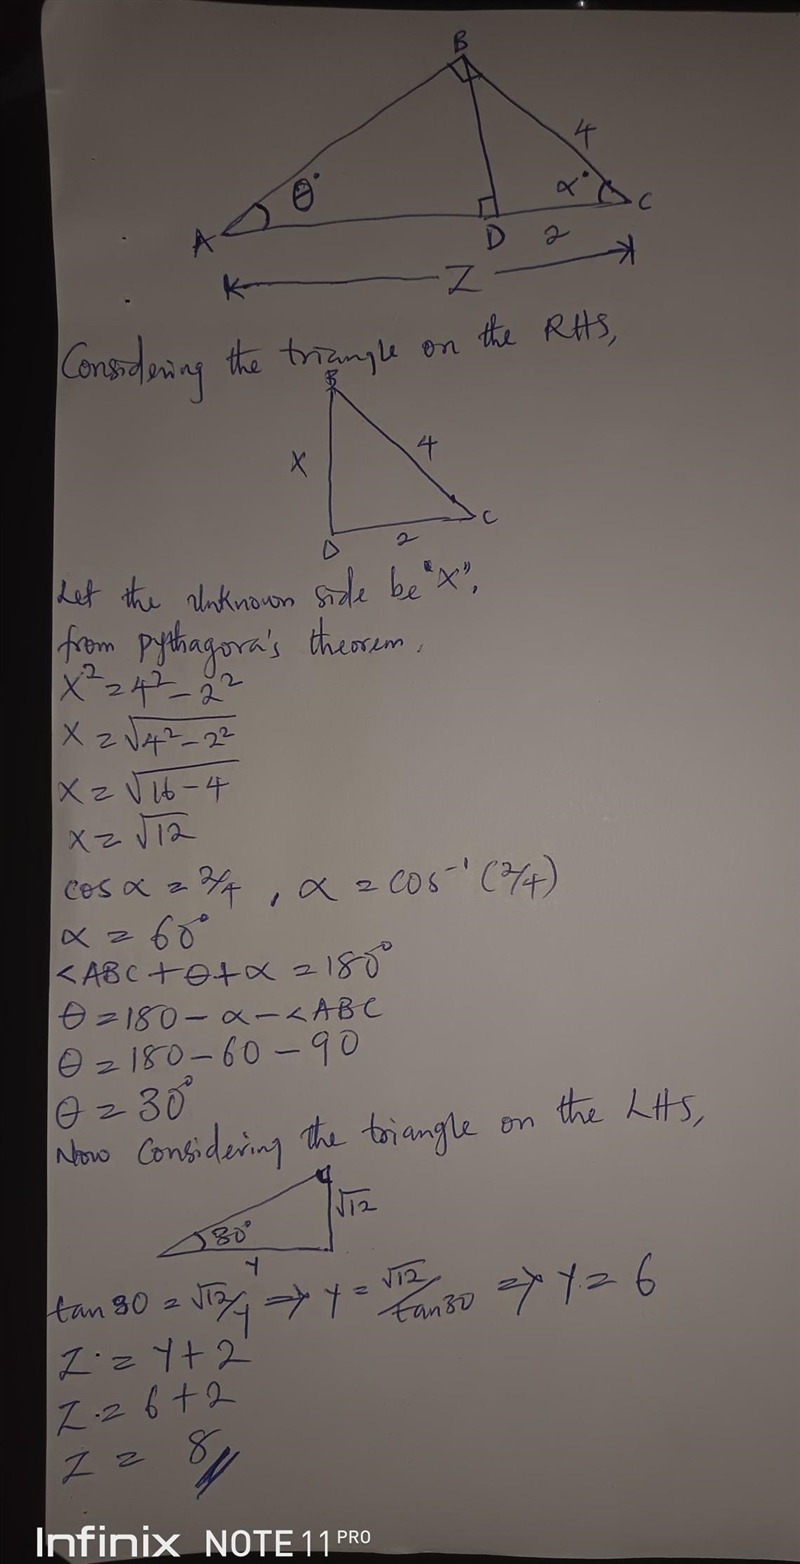 B
4
θ°
α°
C
A
D
2
Z
Considering the triangle on the RHS,
B
X
4
C
D
2
Let the Unknown side be "X",
from pythagora's theorem,
X² = 4² - 2²
X = √4² - 2²
X = √16 - 4
X = √12
cos α = 2/4 , α = cos⁻¹ (2/4)
α = 60°
<ABC + θ + α = 180°
θ = 180 - α - <ABC
θ = 180 - 60 - 90
θ = 30°
Now Considering the triangle on the LHS,
√12
30°
Y
tan 30 = √12/Y => Y = √12/tan 30 => Y = 6
Z = Y + 2
Z = 6 + 2
Z = 8
Infinix NOTE 11 PRO